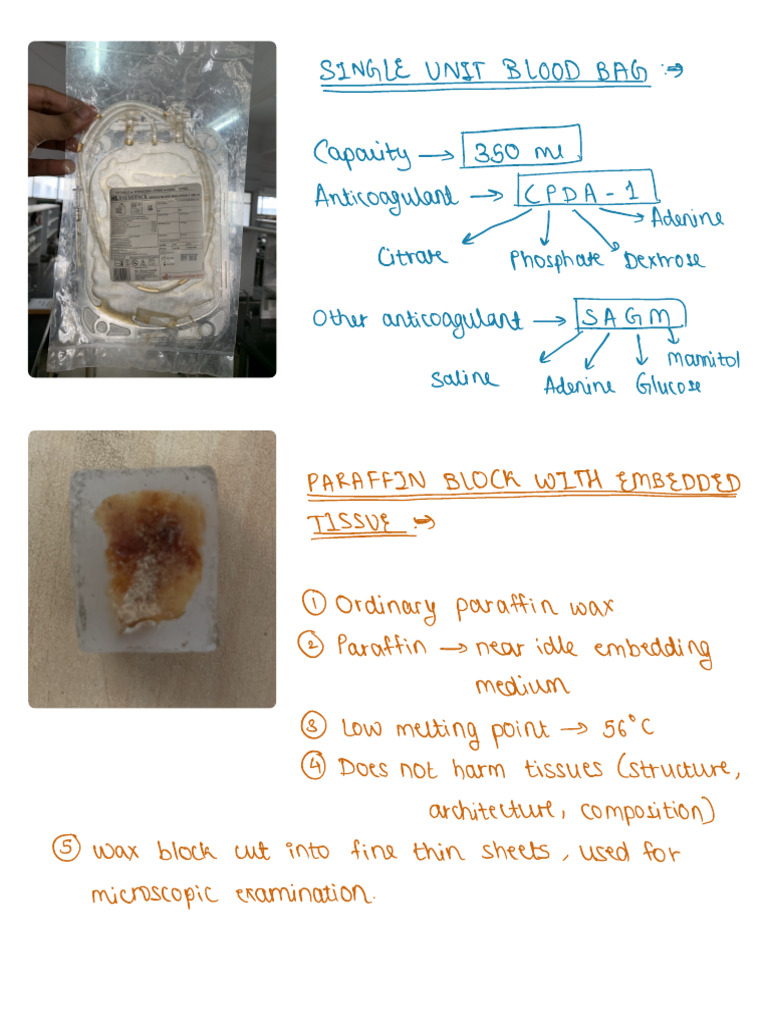 SINGLE UNIT BLOOD BAG :→
Capacity → 350 ml
Anticoagulant → CPDA-1
Adenine
Citrate Phosphate Dextrose
Other anticoagulant → SAGM
Mannitol
Saline Adenine Glucose
PARAFFIN BLOCK WITH EMBEDDED
TISSUE :→
① Ordinary paraffin wax
② Paraffin → near idle embedding
medium
③ Low melting point → 56°C
④ Does not harm tissues (structure,
architecture, composition)
⑤ Wax block cut into fine thin sheets, used for
microscopic examination.